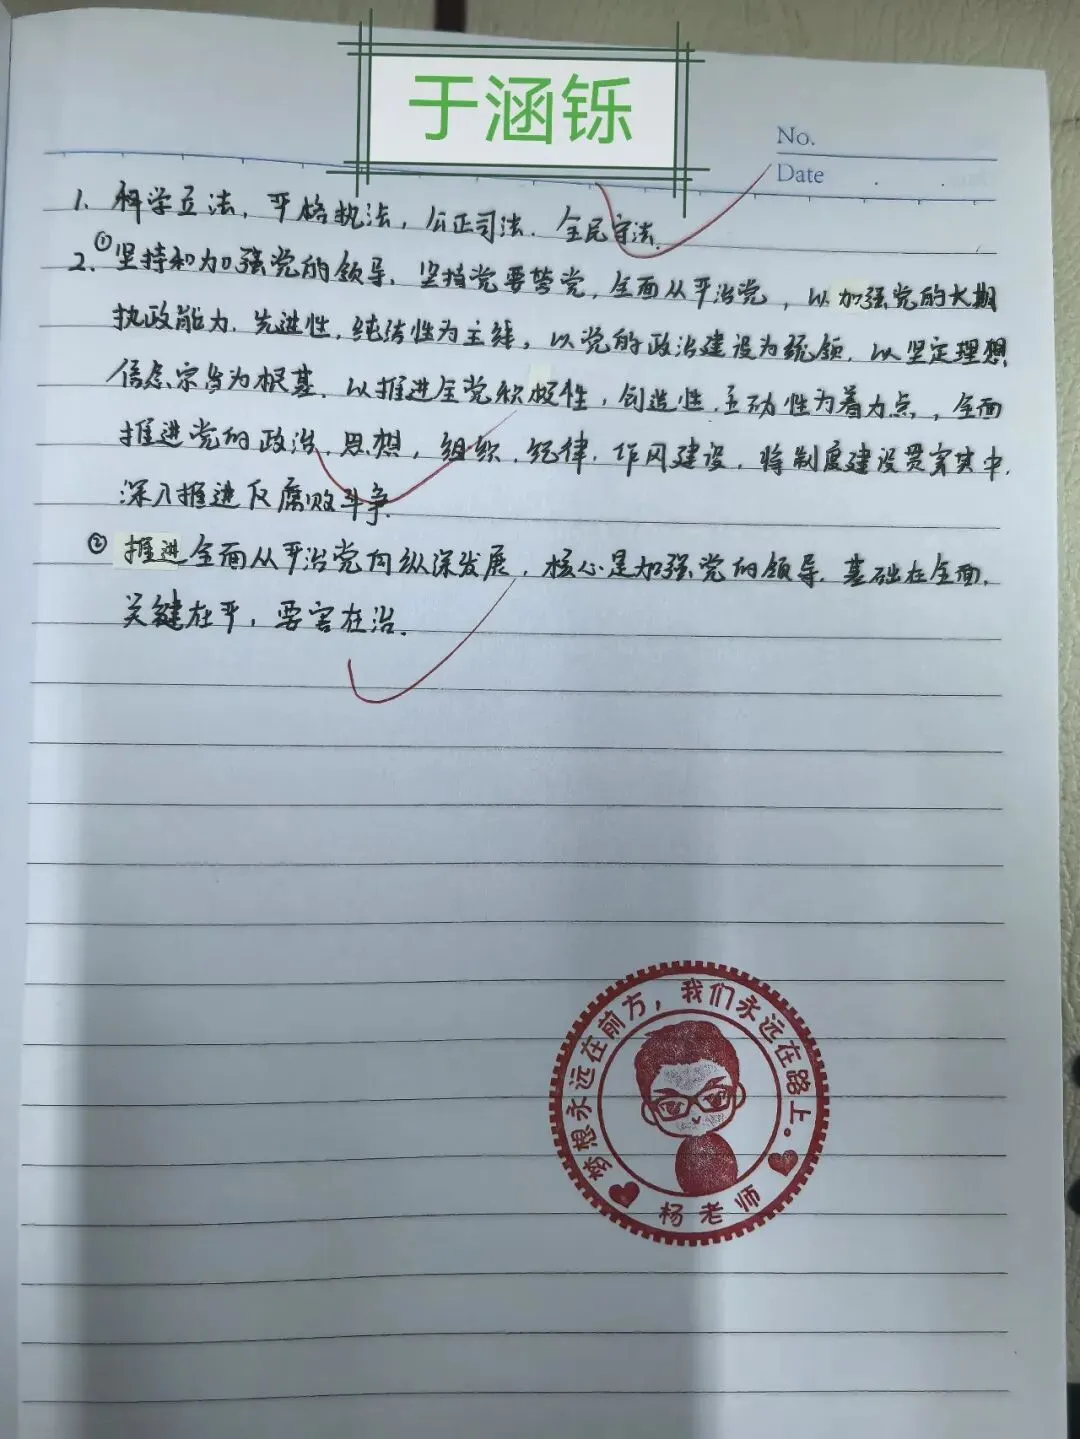 于涵铄
No.
Date
1. 科学立法,严格执法,公正司法.全民守法.
2.①坚持和加强党的领导.坚持党要管党,全面从严治党,以加强党的长期
执政能力.先进性.纯洁性为主线,以党的政治建设为统领.以坚定理想
信念宗旨为根基.以推进全党积极性,创造性.主动性为着力点,全面
推进党的政治.思想,组织.纪律.作风建设.将制度建设贯穿其中.
深入推进反腐败斗争.
②推进全面从严治党向纵深发展,核心是加强党的领导.基础在全面.
关键在严,要害在治.
梦想永远在前方,我们永远在路上。
杨老师